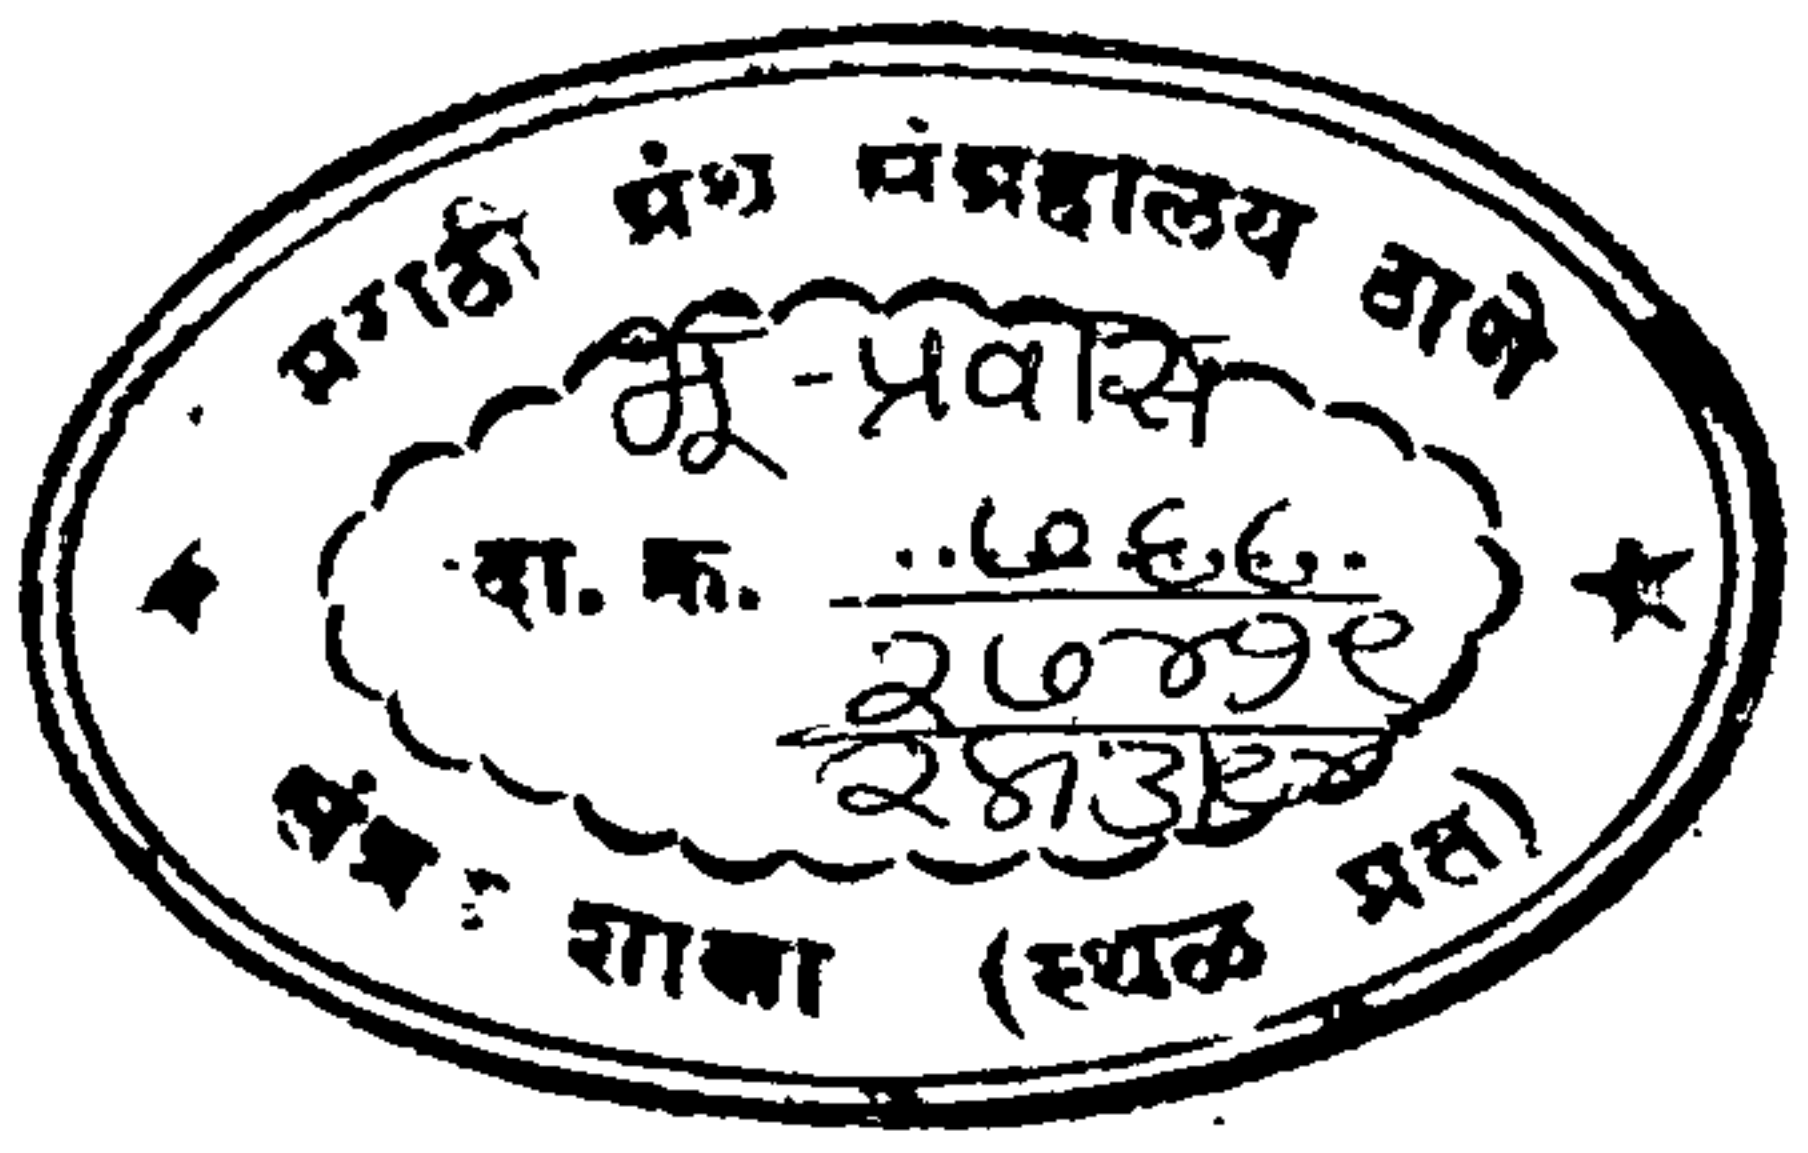 मराठी ग्रंथ संग्रहालय ठाणे
भू-प्रवास
दा. क्र. ..७६६.
२७४१९
संग्रह शाखा (स्थळ प्रत)